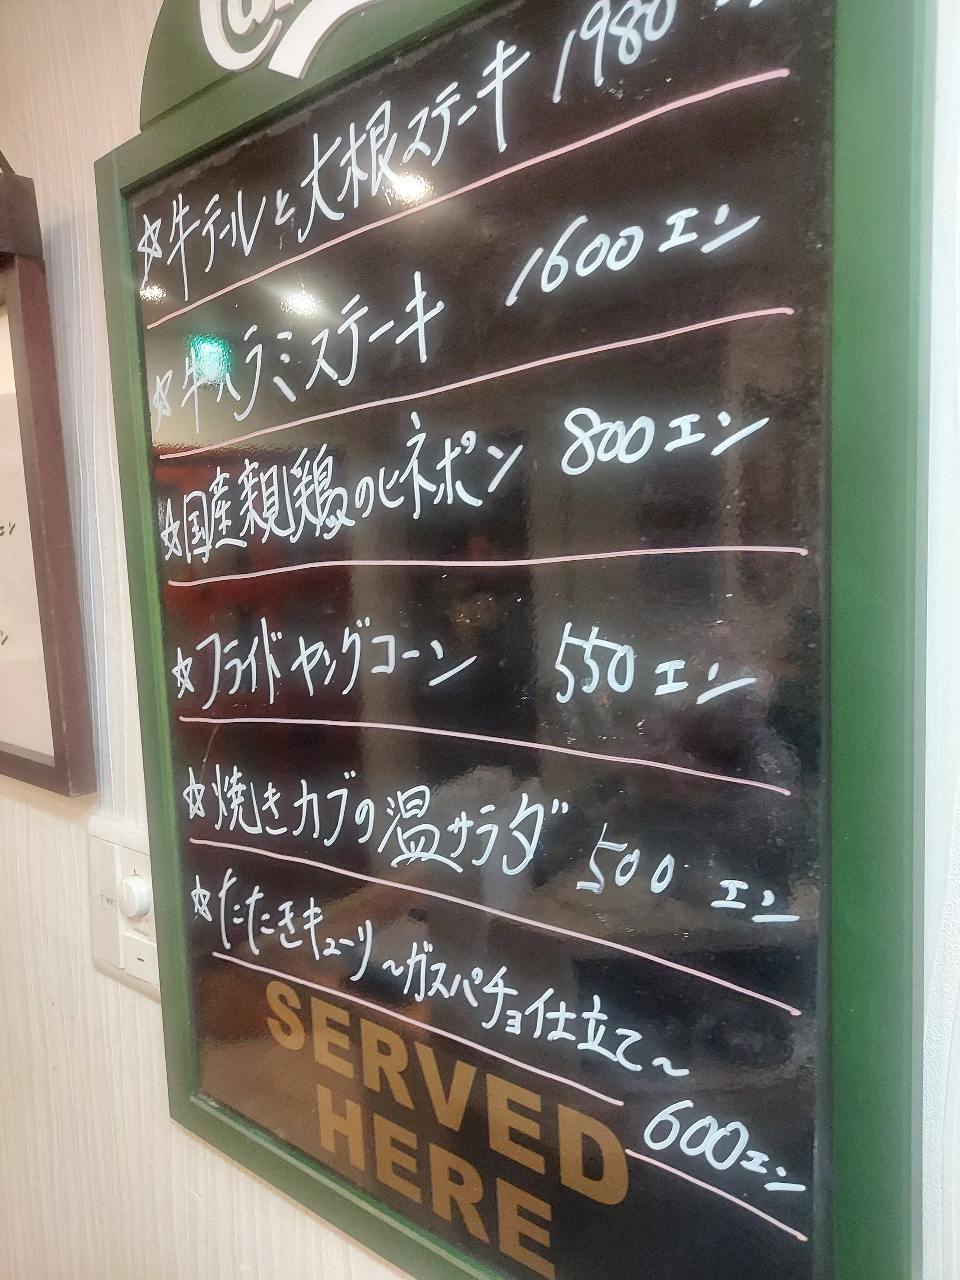 ☆牛テールと大根ステーキ 1980エン
☆牛ハラミステーキ 1600エン
☆国産親鶏のヒネポン 800エン
☆フライドヤングコーン 550エン
☆焼きカブの温サラダ 500エン
☆たたきキューリ~ガスパチョ仕立て~
600エン
SERVED
HERE
エン